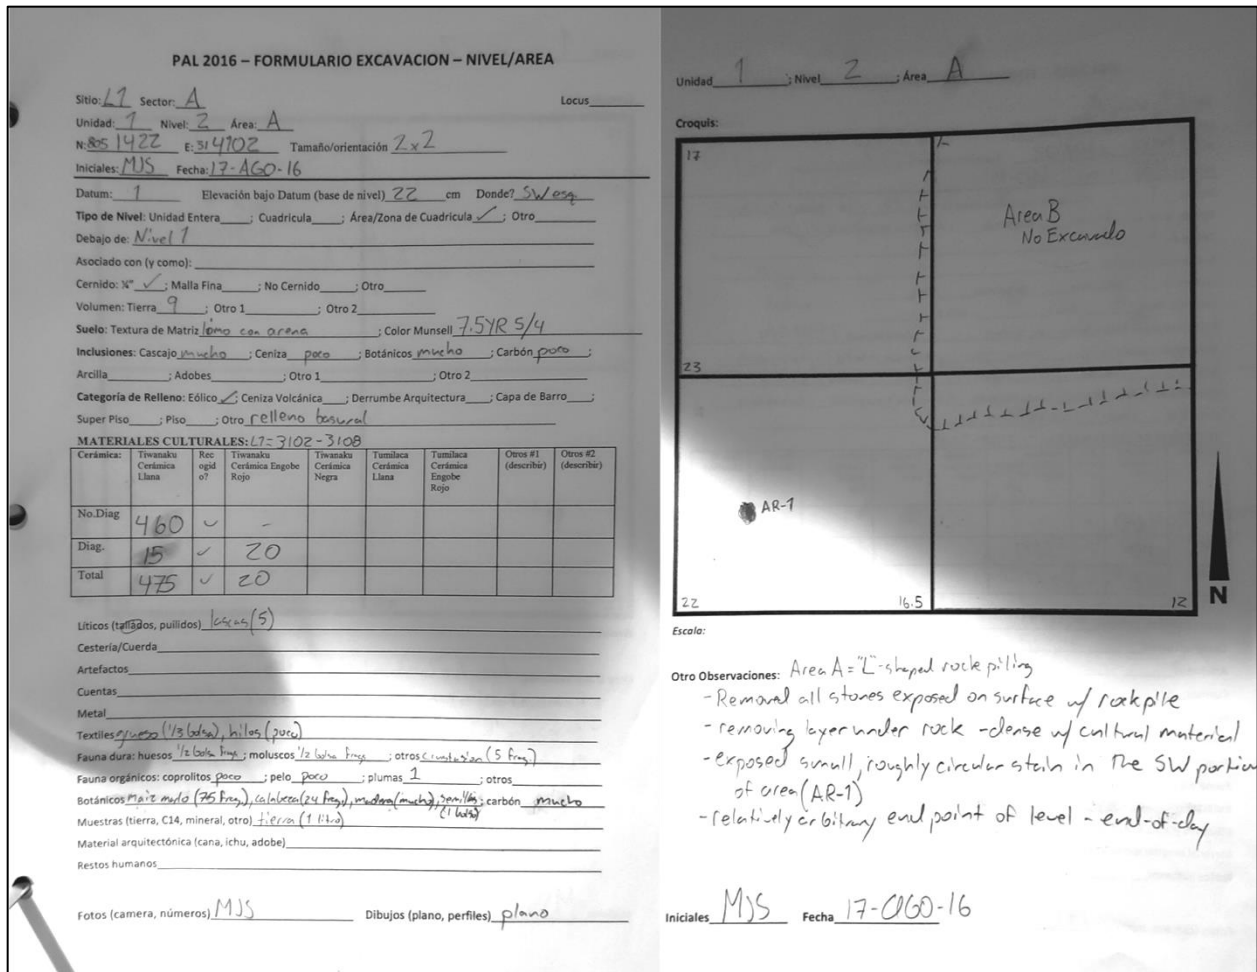 PAL 2016 – FORMULARIO EXCAVACION – NIVEL/AREA
Sitio: L1 Sector: A Locus
Unidad: 1 Nivel: 2 Área: A
N: 8051422 E: 314102 Tamaño/orientación 2x2
Iniciales: MJS Fecha: 17-AGO-16
Datum: 1 Elevación bajo Datum (base de nivel) 22 cm Donde? SW esq
Tipo de Nivel: Unidad Entera ; Cuadricula ; Área/Zona de Cuadricula ✓ ; Otro
Debajo de: Nivel 1
Asociado con (y como):
Cernido: ¼" ✓ ; Malla Fina ; No Cernido ; Otro
Volumen: Tierra 9 ; Otro 1 ; Otro 2
Suelo: Textura de Matriz lomo con arena ; Color Munsell 7.5YR 5/4
Inclusiones: Cascajo mucho ; Ceniza poco ; Botánicos mucho ; Carbón poco ;
Arcilla ; Adobes ; Otro 1 ; Otro 2
Categoría de Relleno: Eólico ✓ ; Ceniza Volcánica ; Derrumbe Arquitectura ; Capa de Barro ;
Super Piso ; Piso ; Otro relleno basural
MATERIALES CULTURALES: L1=3102-3108
Cerámica: Tiwanaku Cerámica Llana Recogido? Tiwanaku Cerámica Engobe Rojo Tiwanaku Cerámica Negra Tumilaca Cerámica Llana Tumilaca Cerámica Engobe Rojo Otros #1 (describir) Otros #2 (describir)
No.Diag 460 ✓ -
Diag. 15 ✓ 20
Total 475 ✓ 20
Líticos (tallados, puilidos) lascas (5)
Cestería/Cuerda
Artefactos
Cuentas
Metal
Textiles grueso (1/3 bolsa), hilos (poco)
Fauna dura: huesos 1/2 bolsa frags ; moluscos 1/2 bolsa frags ; otros (5 frag.)
Fauna orgánicos: coprolitos poco ; pelo poco ; plumas 1 ; otros
Botánicos maiz (75 frag), calabeza (24 frag), madera (mucho), semillas (1 bolsa) ; carbón mucho
Muestras (tierra, C14, mineral, otro) tierra (1 litro)
Material arquitectónica (cana, ichu, adobe)
Restos humanos
Fotos (camera, números) MJS Dibujos (plano, perfiles) plano
Unidad 1 ; Nivel 2 ; Área A
Croquis:
17
Area B
No Excavado
23
AR-1
22 16.5 12
N
Escala:
Otro Observaciones: Area A = "L"-shaped rock piling
- Removal all stones exposed on surface w/ rockpile
- removing layer under rock - dense w/ cultural material
- exposed small, roughly circular stain in the SW portion
of area (AR-1)
- relatively arbitrary end point of level - end-of-day
Iniciales MJS Fecha 17-AGO-16